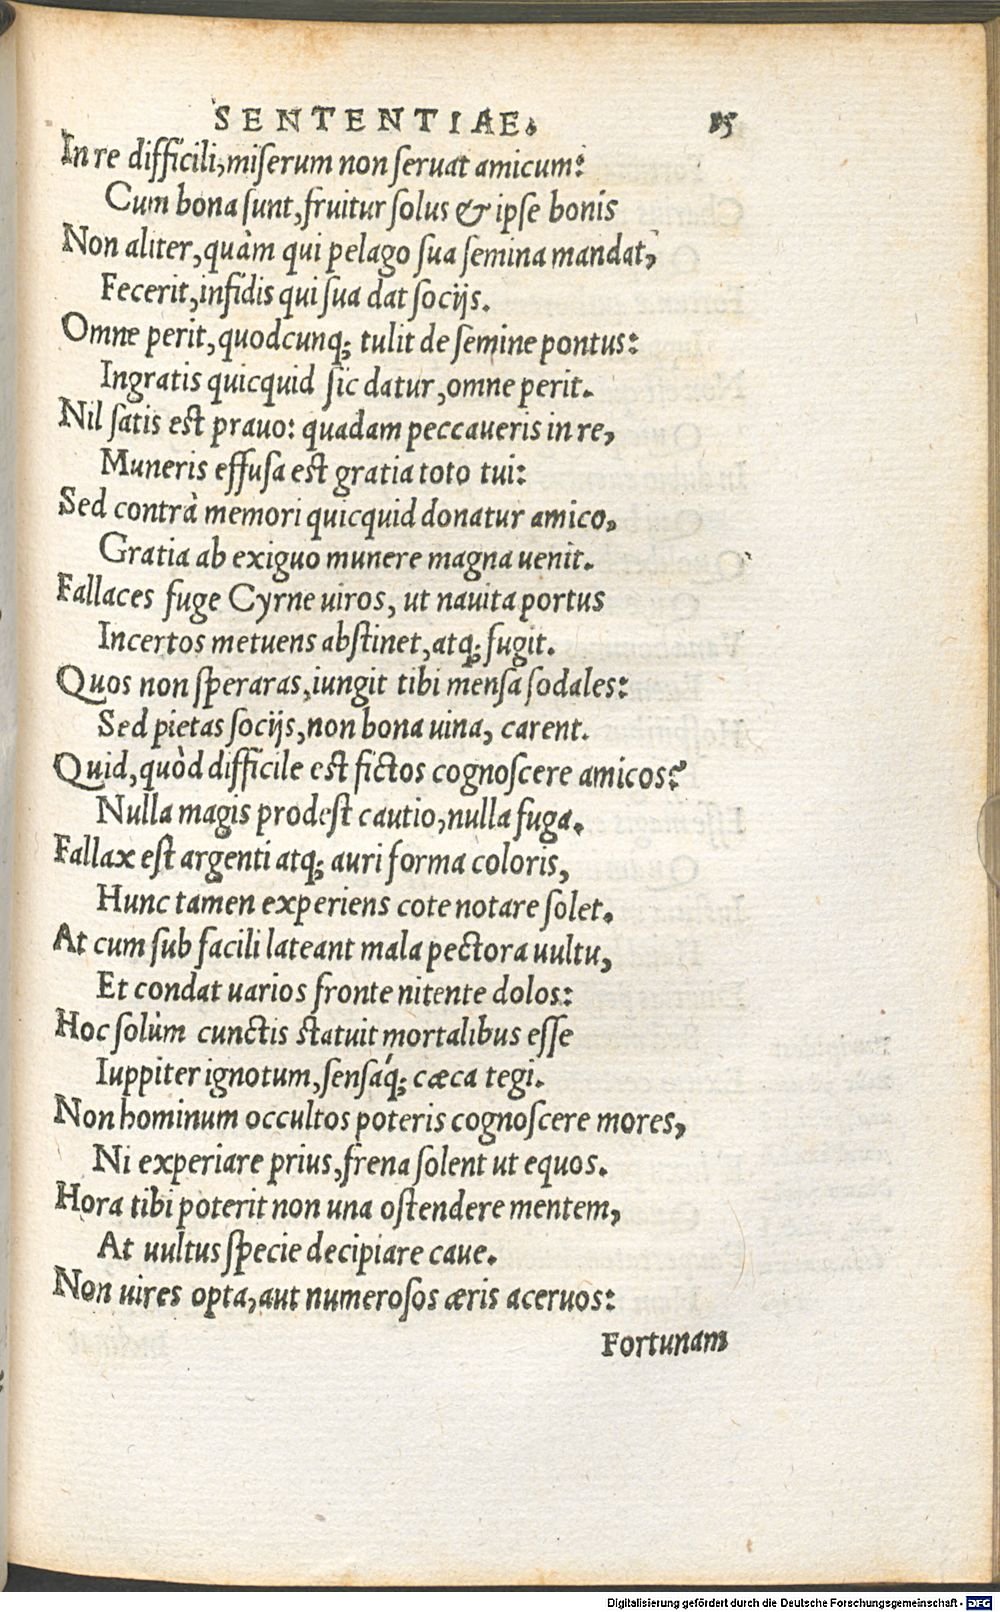 SENTENTIAE. 15
In re difficili, miserum non seruat amicum:
Cum bona sunt, fruitur solus & ipse bonis
Non aliter, quàm qui pelago sua semina mandat,
Fecerit, infidis qui sua dat socijs.
Omne perit, quodcunq; tulit de semine pontus:
Ingratis quicquid sic datur, omne perit.
Nil satis est prauo: quadam peccaueris in re,
Muneris effusa est gratia toto tui:
Sed contrà memori quicquid donatur amico,
Gratia ab exiguo munere magna uenit.
Fallaces fuge Cyrne uiros, ut nauita portus
Incertos metuens abstinet, atq; fugit.
Quos non speraras, iungit tibi mensa sodales:
Sed pietas socijs, non bona uina, carent.
Quid, quòd difficile est fictos cognoscere amicos?
Nulla magis prodest cautio, nulla fuga.
Fallax est argenti atq; auri forma coloris,
Hunc tamen experiens cote notare solet.
At cum sub facili lateant mala pectora uultu,
Et condat uarios fronte nitente dolos:
Hoc solùm cunctis statuit mortalibus esse
Iuppiter ignotum, sensáq; cæca tegi.
Non hominum occultos poteris cognoscere mores,
Ni experiare prius, frena solent ut equos.
Hora tibi poterit non una ostendere mentem,
At uultus specie decipiare caue.
Non uires opta, aut numerosos æris aceruos:
Fortunam
Digitalisierung gefördert durch die Deutsche Forschungsgemeinschaft - DFG